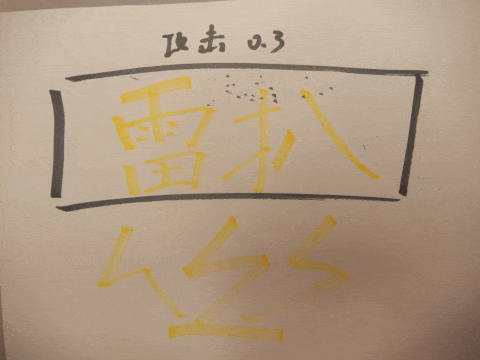 攻击 0.3
雷扒